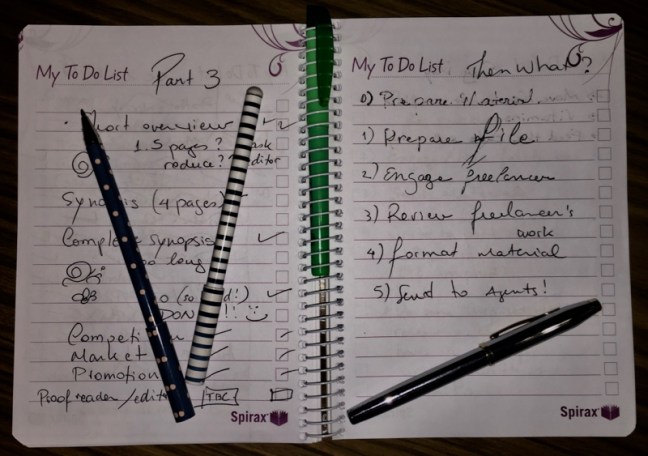 My To Do List Part 3
Short overview
1.5 pages? ask
reduce? editor
Synopsis (4 pages)
synopsis
too long
Market
Promotion
Proofreader/edit TBC
Spirax
My To Do List Then What?
0) Prepare Material.
1) Prepare file
2) Engage freelancer
3) Review freelancer's
work
4) format material
5) Send to Agents!
Spirax